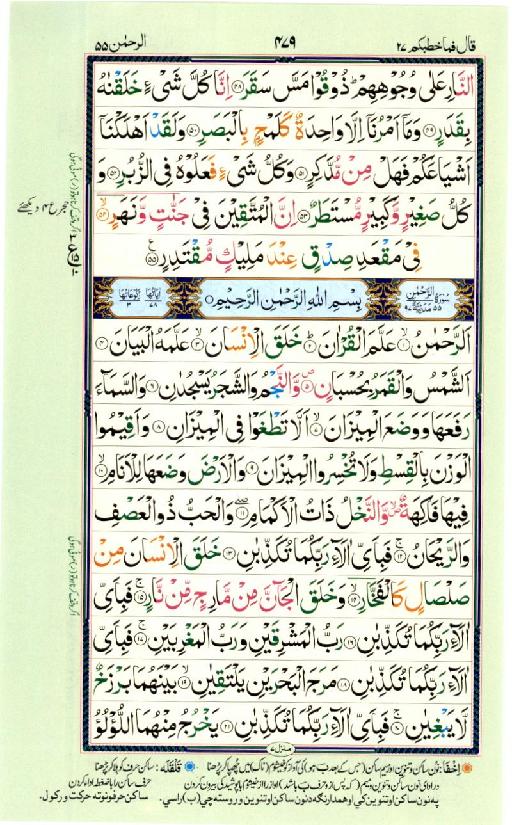 قال فما خطبكم ٢٧ ٤٧٩ الرحمٰن ٥٥
النَّارِ عَلٰى وُجُوْهِهِمْ ؕ ذُوْقُوْا مَسَّ سَقَرَ ﴿۴۸﴾ اِنَّا كُلَّ شَیْءٍ خَلَقْنٰهُ
بِقَدَرٍ ﴿۴۹﴾ وَمَاۤ اَمْرُنَاۤ اِلَّا وَاحِدَةٌ كَلَمْحٍۭ بِالْبَصَرِ ﴿۵۰﴾ وَلَقَدْ اَهْلَكْنَاۤ
اَشْيَاعَكُمْ فَهَلْ مِنْ مُّدَّكِرٍ ﴿۵۱﴾ وَكُلُّ شَیْءٍ فَعَلُوْهُ فِی الزُّبُرِ ﴿۵۲﴾ وَ
كُلُّ صَغِيْرٍ وَّكَبِيْرٍ مُّسْتَطَرٌ ﴿۵۳﴾ اِنَّ الْمُتَّقِيْنَ فِیْ جَنّٰتٍ وَّنَهَرٍ ﴿۵۴﴾
فِیْ مَقْعَدِ صِدْقٍ عِنْدَ مَلِيْكٍ مُّقْتَدِرٍ ﴿۵۵﴾
سورة الرحمٰن ٥٥ مدنية بِسْمِ اللّٰهِ الرَّحْمٰنِ الرَّحِيْمِ اٰياتها ٧٨ ركوعاتها ٣
اَلرَّحْمٰنُ ﴿۱﴾ عَلَّمَ الْقُرْاٰنَ ﴿۲﴾ خَلَقَ الْاِنْسَانَ ﴿۳﴾ عَلَّمَهُ الْبَيَانَ ﴿۴﴾
اَلشَّمْسُ وَالْقَمَرُ بِحُسْبَانٍ ﴿۵﴾ وَّالنَّجْمُ وَالشَّجَرُ يَسْجُدٰنِ ﴿۶﴾ وَالسَّمَآءَ
رَفَعَهَا وَوَضَعَ الْمِيْزَانَ ﴿۷﴾ اَلَّا تَطْغَوْا فِی الْمِيْزَانِ ﴿۸﴾ وَاَقِيْمُوا
الْوَزْنَ بِالْقِسْطِ وَلَا تُخْسِرُوا الْمِيْزَانَ ﴿۹﴾ وَالْاَرْضَ وَضَعَهَا لِلْاَنَامِ ﴿۱۰﴾
فِيْهَا فَاكِهَةٌ وَّالنَّخْلُ ذَاتُ الْاَكْمَامِ ﴿۱۱﴾ وَالْحَبُّ ذُو الْعَصْفِ
وَالرَّيْحَانُ ﴿۱۲﴾ فَبِاَیِّ اٰلَآءِ رَبِّكُمَا تُكَذِّبٰنِ ﴿۱۳﴾ خَلَقَ الْاِنْسَانَ مِنْ
صَلْصَالٍ كَالْفَخَّارِ ﴿۱۴﴾ وَخَلَقَ الْجَآنَّ مِنْ مَّارِجٍ مِّنْ نَّارٍ ﴿۱۵﴾ فَبِاَیِّ
اٰلَآءِ رَبِّكُمَا تُكَذِّبٰنِ ﴿۱۶﴾ رَبُّ الْمَشْرِقَيْنِ وَرَبُّ الْمَغْرِبَيْنِ ﴿۱۷﴾ فَبِاَیِّ
اٰلَآءِ رَبِّكُمَا تُكَذِّبٰنِ ﴿۱۸﴾ مَرَجَ الْبَحْرَيْنِ يَلْتَقِيٰنِ ﴿۱۹﴾ بَيْنَهُمَا بَرْزَخٌ
لَّا يَبْغِيٰنِ ﴿۲۰﴾ فَبِاَیِّ اٰلَآءِ رَبِّكُمَا تُكَذِّبٰنِ ﴿۲۱﴾ يَخْرُجُ مِنْهُمَا اللُّؤْلُؤُ
منزل ٧